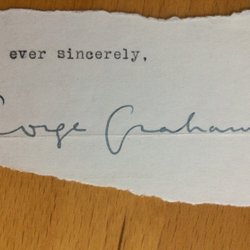 ever sincerely,
George Graham